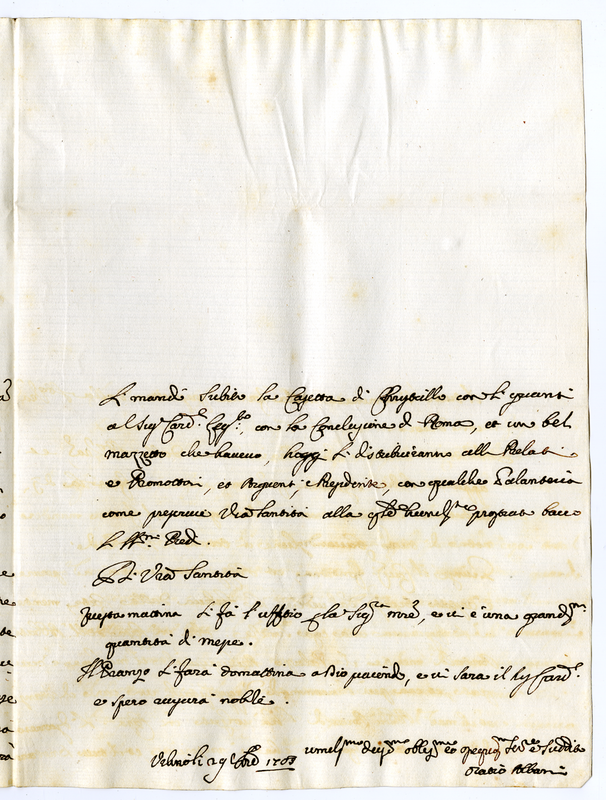 Si mandò subito la Casetta di Christallo con li guanti
al Sig.r Card.l Leg.to, con la Conclusione di Roma, et un bel
mazzetto che haveva, hoggi si distribuiranno alli Prelati
e Promottori, et Arguenti, e Residente, con qualche galanteria
come prescrive V'ra Santità alla q'le humil.te prostrato bacio
li SS.mi Piedi.
Di V'ra Santità
Questa mattina si fà l'uffitio la Sig.ra m're, e vi è una grand.ma
quantità di messe.
Il Pranzo si farà domattina a Dio piacendo, e vi sarà il Sig.r Card.l
e spero riuscirà nobile.
li 29 1703 umiliss.mo dev.mo oblig.mo et ossequios.mo Ser.re e Suddito
Oratio Albani